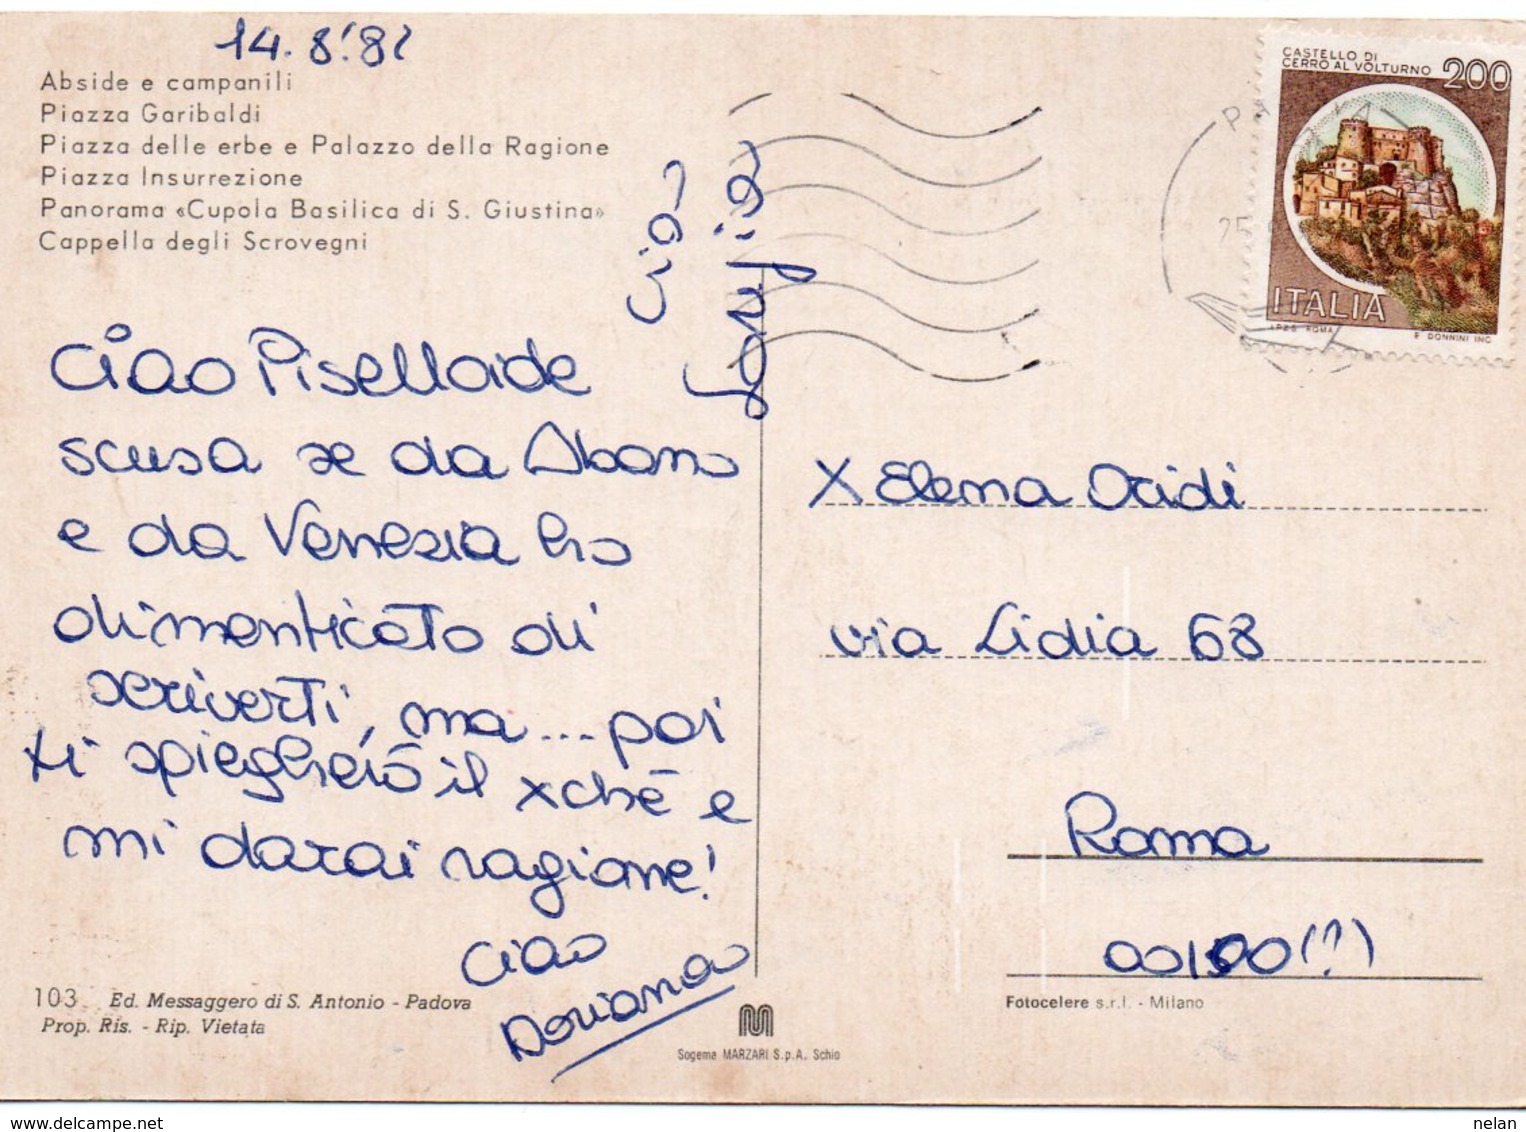 14.8.'82
Abside e campanili
Piazza Garibaldi
Piazza delle erbe e Palazzo della Ragione
Piazza Insurrezione
Panorama «Cupola Basilica di S. Giustina»
Cappella degli Scrovegni
Ciao Pisellaide
scusa se da Abano
e da Venezia ho
dimenticato di
scriverti, ma... poi
ti spiegherò il xchè e
mi darai ragione!
Ciao
Doriana
Ciao
103 Ed. Messaggero di S. Antonio - Padova
Prop. Ris. - Rip. Vietata
Sogema MARZARI S.p.A. Schio
CASTELLO DI
CERRO AL VOLTURNO 200
ITALIA
I.P.Z.S. ROMA
E. DONNINI INC.
25
X Elena
via Lidia 68
Roma
00100(?)
Fotocelere s.r.l. - Milano
www.delcampe.net
nelan